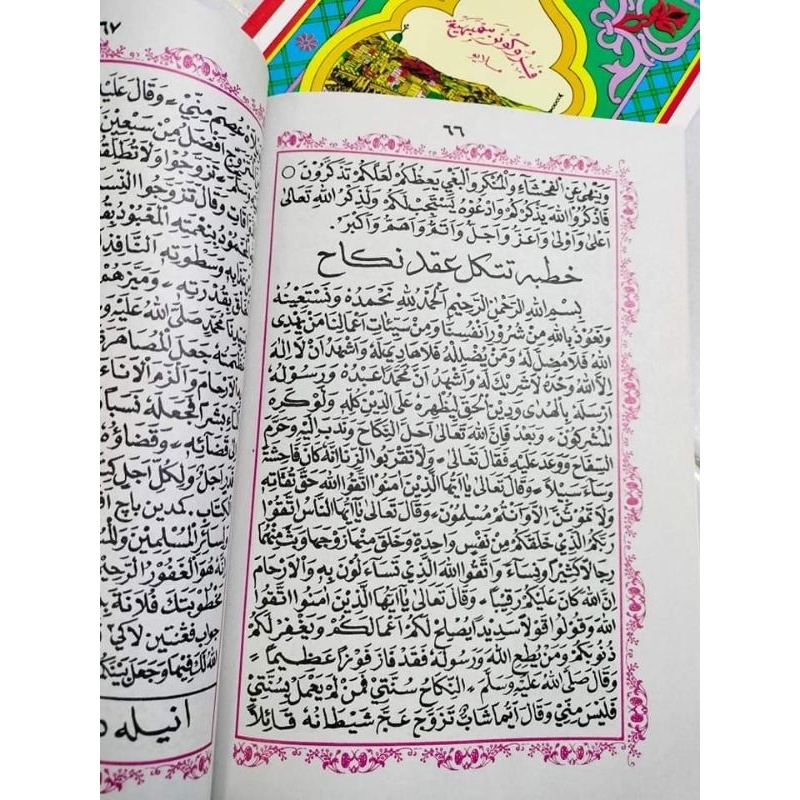 ڤندوكوڠ سمبهيڠ
ملايو
٦٦
وَيَنْهَى عَنِ الْفَحْشَآءِ وَالْمُنْكَرِ وَالْبَغْيِ يَعِظُكُمْ لَعَلَّكُمْ تَذَكَّرُوْنَ ○
فَاذْكُرُوا اللهَ يَذْكُرْكُمْ وَادْعُوْهُ يَسْتَجِبْ لَكُمْ وَلَذِكْرُ اللهِ تَعَالَى
اَعْلَى وَاَوْلَى وَاَعَزُّ وَاَجَلُّ وَاَتَمُّ وَاَهَمُّ وَاَكْبَرُ .
خطبه تتكل عقد نكاح
بِسْمِ اللهِ الرَّحْمٰنِ الرَّحِيْمِ الْحَمْدُ لِلّٰهِ نَحْمَدُهُ وَنَسْتَعِيْنُهُ
وَنَعُوْذُ بِاللهِ مِنْ شُرُوْرِ اَنْفُسِنَا وَمِنْ سَيِّئَاتِ اَعْمَالِنَا مَنْ يَهْدِى
اللهُ فَلَا مُضِلَّ لَهُ وَمَنْ يُضْلِلْهُ فَلَا هَادِيَ لَهُ وَاَشْهَدُ اَنْ لَا اِلٰهَ
اِلَّا اللهُ وَحْدَهُ لَا شَرِيْكَ لَهُ وَاَشْهَدُ اَنَّ مُحَمَّدًا عَبْدُهُ وَرَسُوْلُهُ
اَرْسَلَهُ بِالْهُدٰى وَدِيْنِ الْحَقِّ لِيُظْهِرَهُ عَلَى الدِّيْنِ كُلِّهِ وَلَوْ كَرِهَ
الْمُشْرِكُوْنَ - وَبَعْدُ فَاِنَّ اللهَ تَعَالَى اَحَلَّ النِّكَاحَ وَنَدَبَ اِلَيْهِ وَحَرَّمَ
السِّفَاحَ وَوَعَدَ عَلَيْهِ فَقَالَ تَعَالَى - وَلَا تَقْرَبُوا الزِّنَا اِنَّهُ كَانَ فَاحِشَةً
وَسَآءَ سَبِيْلًا - وَقَالَ تَعَالَى يَا اَيُّهَا الَّذِيْنَ اٰمَنُوا اتَّقُوا اللهَ حَقَّ تُقَاتِهِ
وَلَا تَمُوْتُنَّ اِلَّا وَاَنْتُمْ مُسْلِمُوْنَ - وَقَالَ تَعَالَى يَا اَيُّهَا النَّاسُ اتَّقُوا
رَبَّكُمُ الَّذِيْ خَلَقَكُمْ مِنْ نَفْسٍ وَاحِدَةٍ وَخَلَقَ مِنْهَا زَوْجَهَا وَبَثَّ مِنْهُمَا
رِجَالًا كَثِيْرًا وَنِسَآءً - وَاتَّقُوا اللهَ الَّذِيْ تَسَآءَلُوْنَ بِهِ وَالْاَرْحَامَ
اِنَّ اللهَ كَانَ عَلَيْكُمْ رَقِيْبًا - وَقَالَ تَعَالَى يَا اَيُّهَا الَّذِيْنَ اٰمَنُوا اتَّقُوا
اللهَ وَقُوْلُوْا قَوْلًا سَدِيْدًا يُصْلِحْ لَكُمْ اَعْمَالَكُمْ وَيَغْفِرْ لَكُمْ
ذُنُوْبَكُمْ وَمَنْ يُطِعِ اللهَ وَرَسُوْلَهُ فَقَدْ فَازَ فَوْزًا عَظِيْمًا -
وَقَالَ صَلَّى اللهُ عَلَيْهِ وَسَلَّمَ - النِّكَاحُ سُنَّتِيْ فَمَنْ لَمْ يَعْمَلْ بِسُنَّتِيْ
فَلَيْسَ مِنِّيْ وَقَالَ اَيُّمَا شَابٍّ تَزَوَّجَ عَجَّ شَيْطَانُهُ قَائِلًا
٦٧
عَصَمَ مِنِّيْ - وَقَالَ عَلَيْهِ
اَفْضَلُ مِنْ سَبْعِيْنَ
تَزَوَّجُوْا وَلَا تُطَلِّقُوْا
وَقَالَ تَزَوَّجُوا النِّسَآءَ
بِنِعْمَتِهِ الْمَعْبُوْدِ
وَسَطْوَتِهِ النَّافِذِ
بِقُدْرَتِهِ - وَمَيَّزَهُمْ
مُحَمَّدٍ صَلَّى اللهُ عَلَيْهِ
جَعَلَ الْمُصَاهَرَةَ
الْاَرْحَامَ وَالْزَمَ
بَشَرًا فَجَعَلَهُ نَسَبًا
قَضَائِهِ - وَقَضَاؤُهُ
اَجَلٌ وَلِكُلِّ اَجَلٍ
الْكِتَابِ . كمدين باچ
الْمُسْلِمِيْنَ
هُوَ الْغَفُوْرُ الرَّحِيْمُ
مَخْطُوْبَتَكَ فُلَانَةَ
جواب ڤغنتين لاكي
فِيْهَا وَجَعَلَ بَيْنَكُمْ
انيله